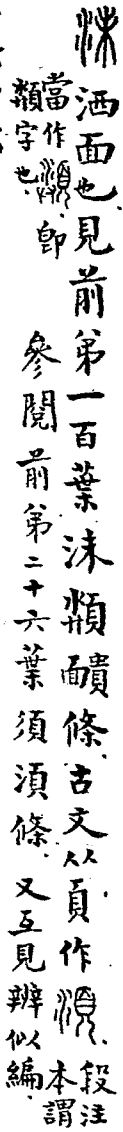 沬洒面也。見前第一百葉沬頮靧條。古文从頁作湏。段注本謂
當作頮。卽頮字也。參閱前第二十六葉須湏條。又互見辨似編。